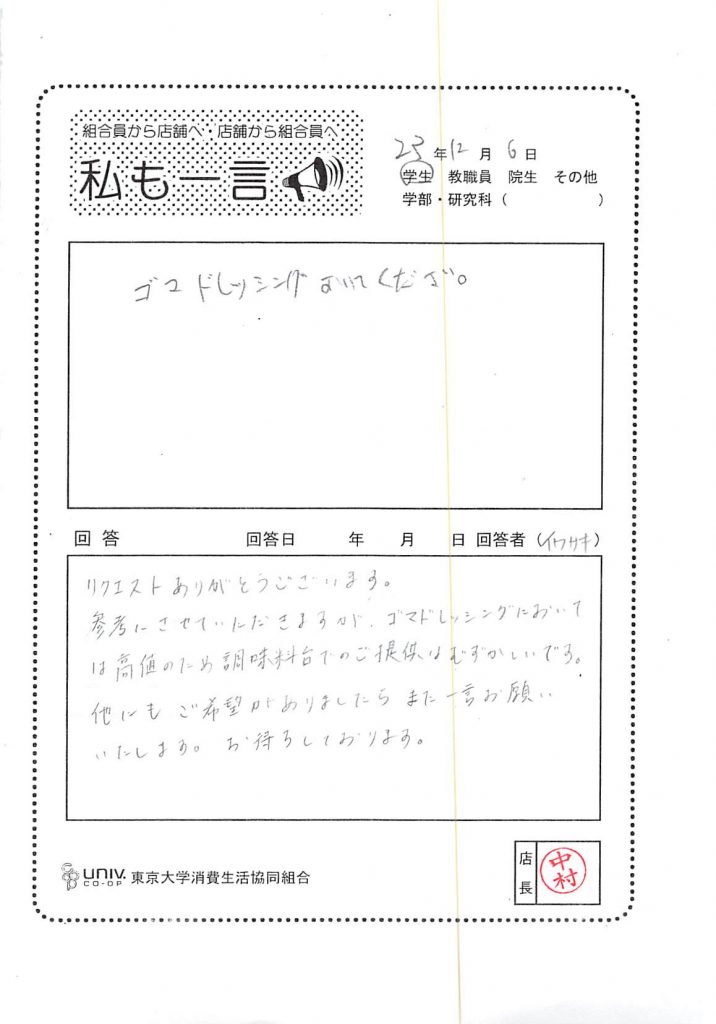 組合員から店舗へ・店舗から組合員へ
私も一言
23年12月6日
学生 教職員 院生 その他
学部・研究科( )
ゴマドレッシングおいてください。
回答 回答日 年 月 日 回答者(イワサキ)
リクエストありがとうございます。
参考にさせていただきますが、ゴマドレッシングにおいて
は高値のため調味料台でのご提供はむずかしいです。
他にもご希望がありましたらまた一言お願い
いたします。お待ちしております。
UNIV. CO-OP 東京大学消費生活協同組合
店長 中村